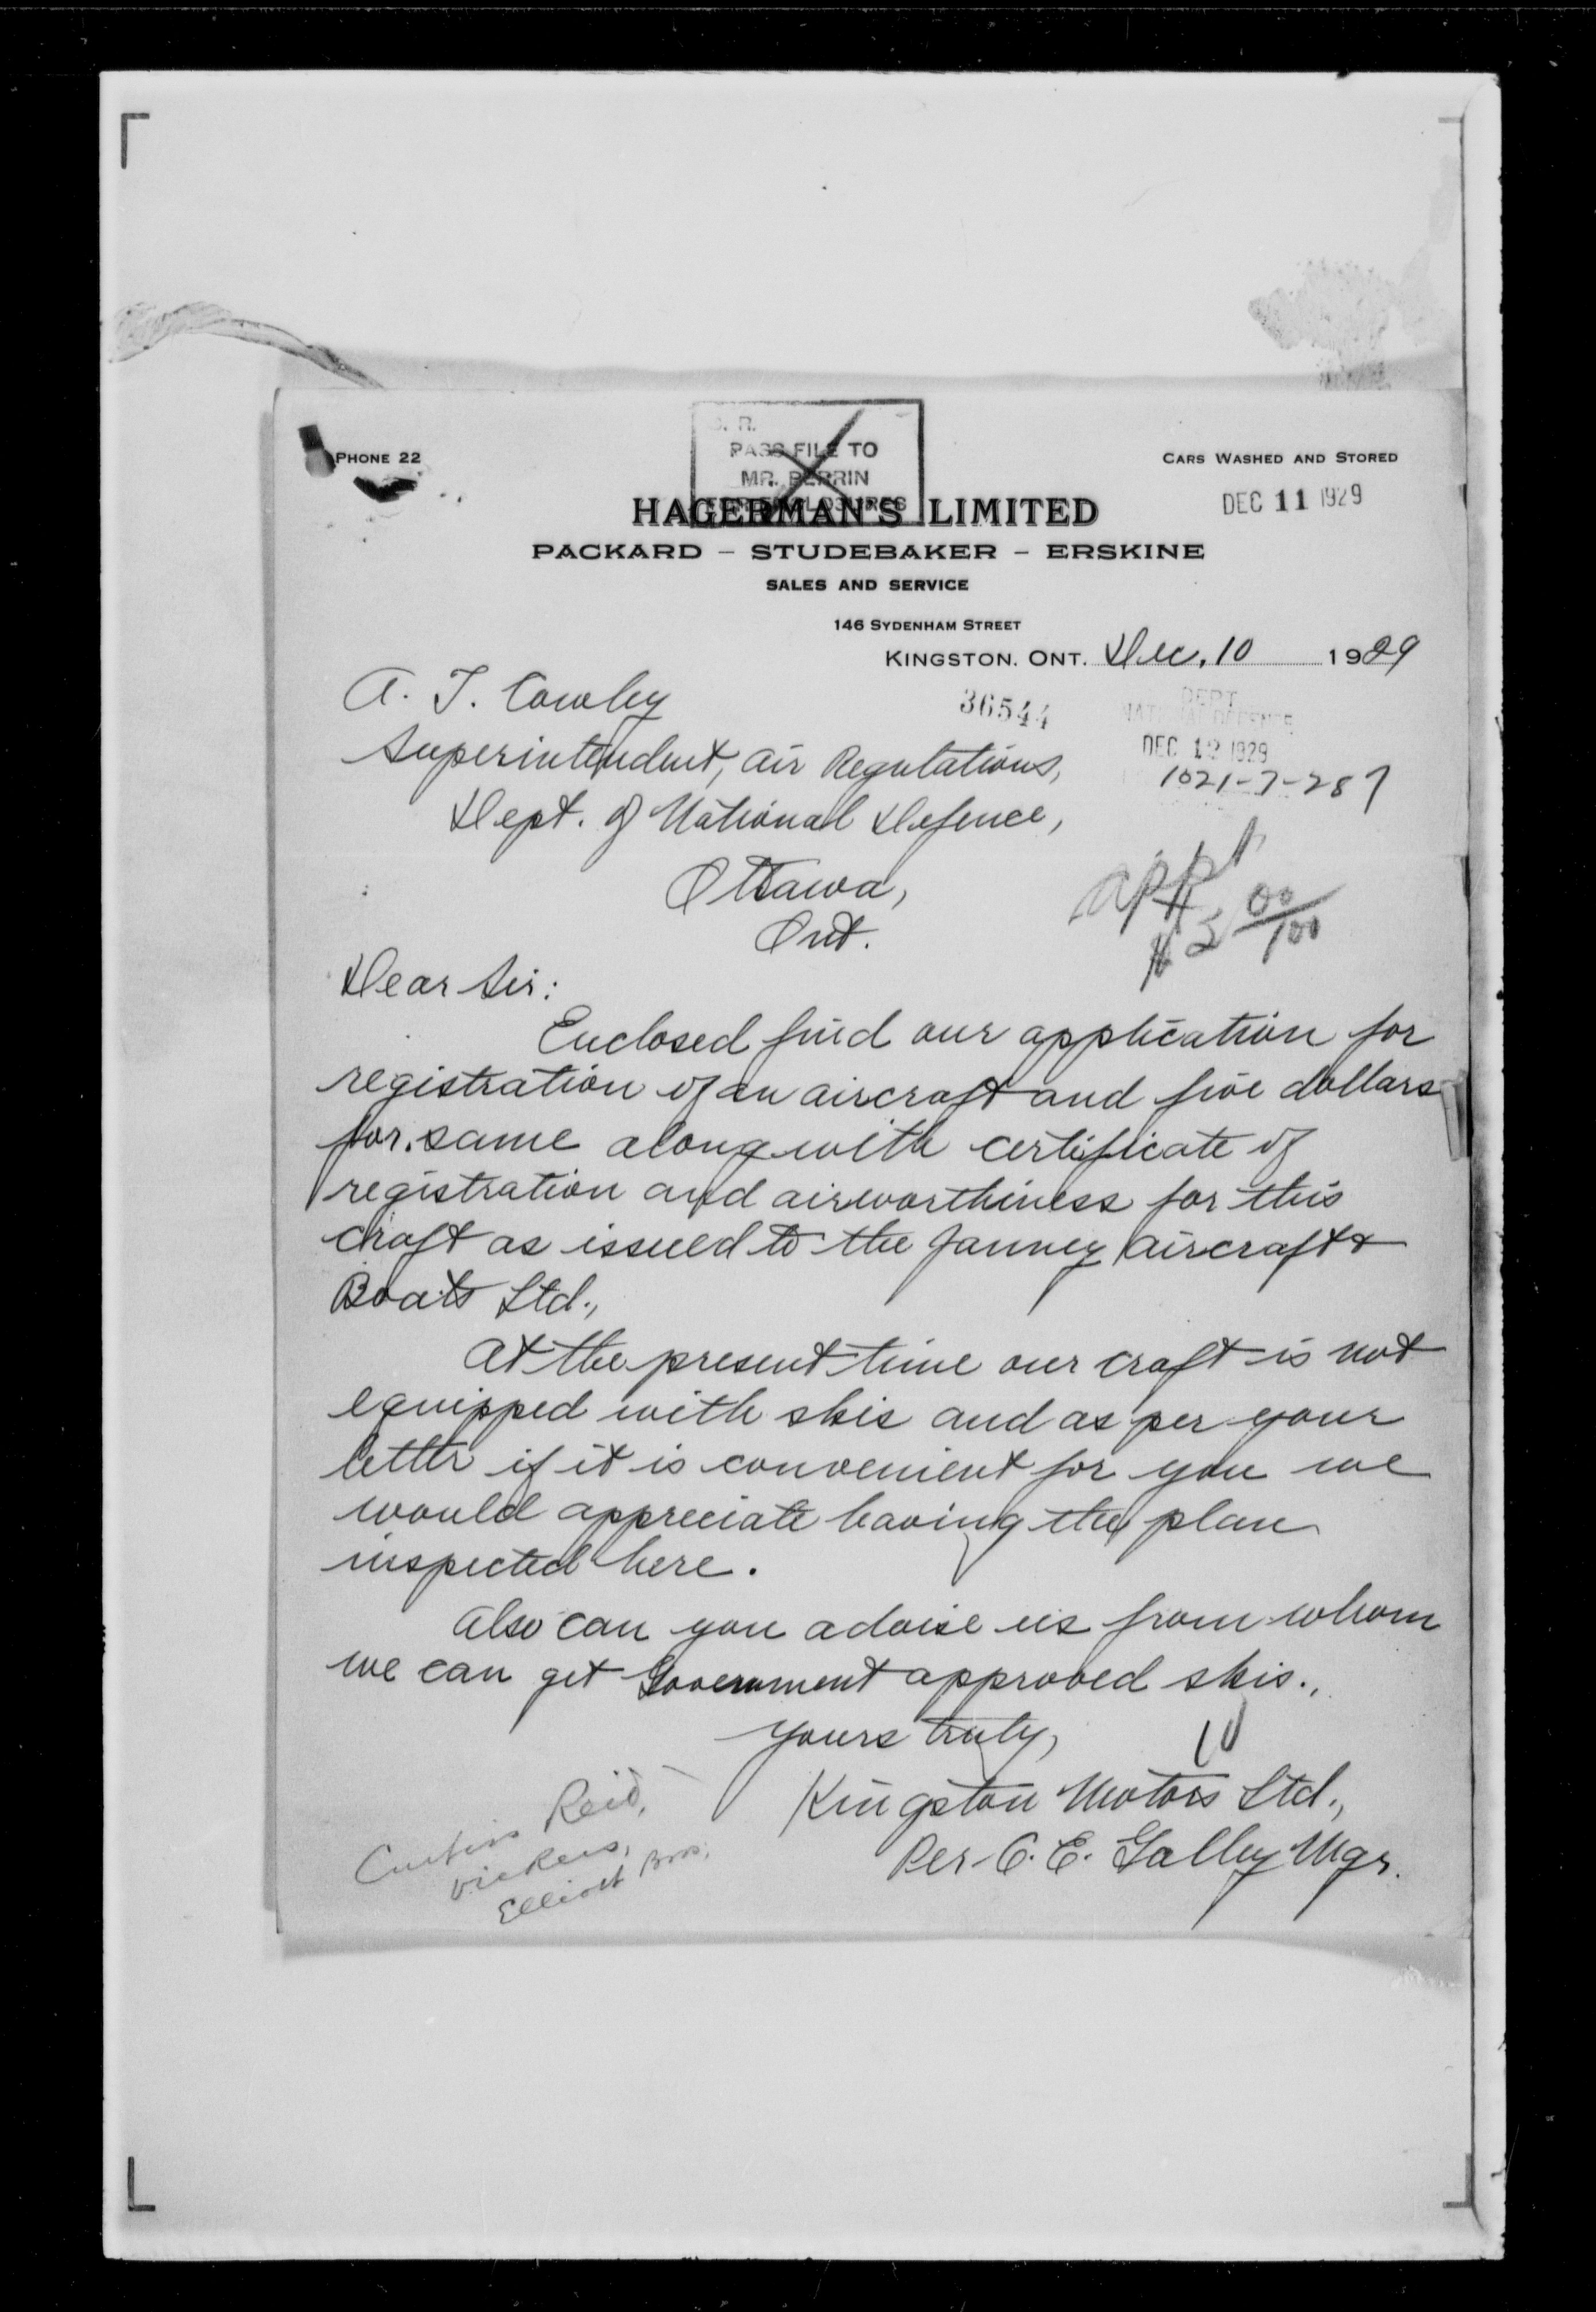 PHONE 22
PASS FILE TO
MR. PERRIN
CARS WASHED AND STORED
DEC 11 1929
HAGERMAN'S LIMITED
PACKARD – STUDEBAKER – ERSKINE
SALES AND SERVICE
146 SYDENHAM STREET
KINGSTON. ONT. Dec. 10 1929
36544
DEPT
NATIONAL DEFENCE
DEC 12 1929
1021-7-287
A. T. Cowley
Superintendent, Air Regulations,
Dept. of National Defence,
Ottawa,
Ont.
appt
$5 00/100
Dear Sir:
Enclosed find our application for
registration of an aircraft and five dollars
for same along with certificate of
registration and airworthiness for this
craft as issued to the Janney Aircraft &
Boats Ltd.,
At the present time our craft is not
equipped with skis and as per your
letter if it is convenient for you we
would appreciate having the plane
inspected here.
Also can you advise us from whom
we can get Government approved skis.,
Yours truly,
Kingston Motors Ltd.,
Per C. E. Galley Mgr.
Curtiss Reid,
Vickers,
Elliott Bros.